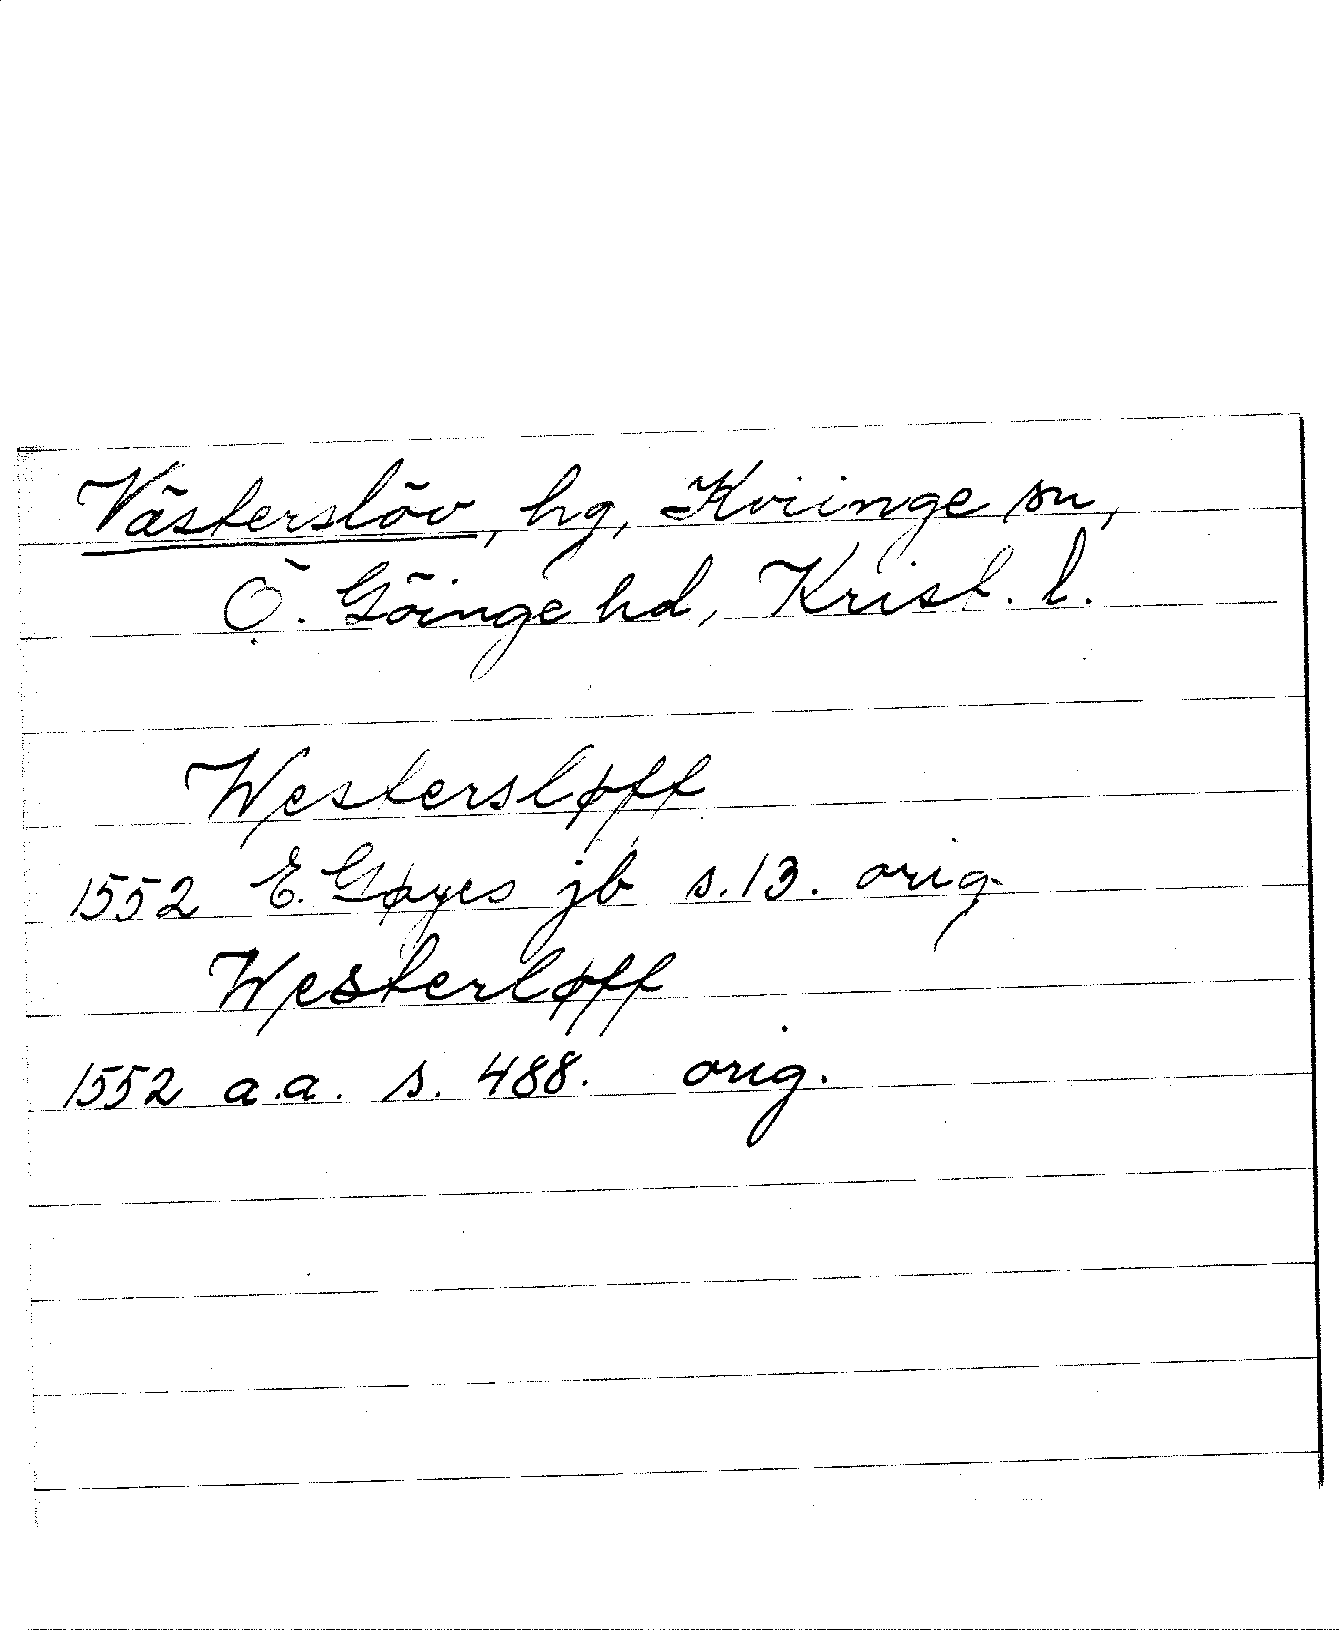 Västerslöv, hg, Kviinge sn,
Ö. Göinge hd, Krist. l.
Westersløff
1552 E. Gøyes jb s. 13. orig.
Westerløff
1552 a.a. s. 488. orig.